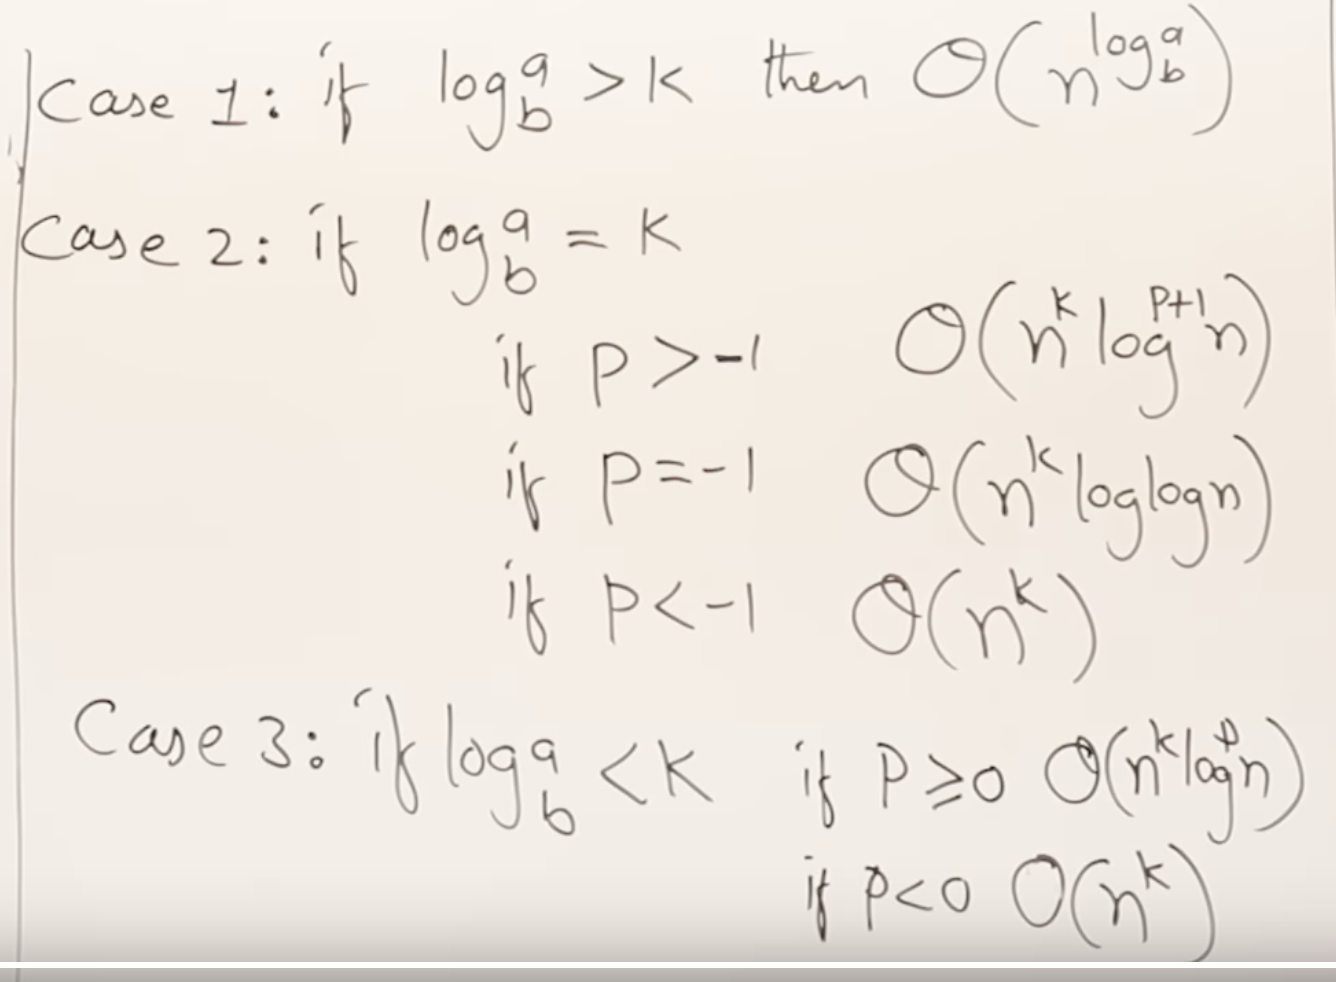 Case 1: if log_b^a > k then O(n^(log_b^a))
Case 2: if log_b^a = k
if P > -1 O(n^k log^(P+1) n)
if P = -1 O(n^k log log n)
if P < -1 O(n^k)
Case 3: if log_b^a < k if P ≥ 0 O(n^k log^p n)
if P < 0 O(n^k)